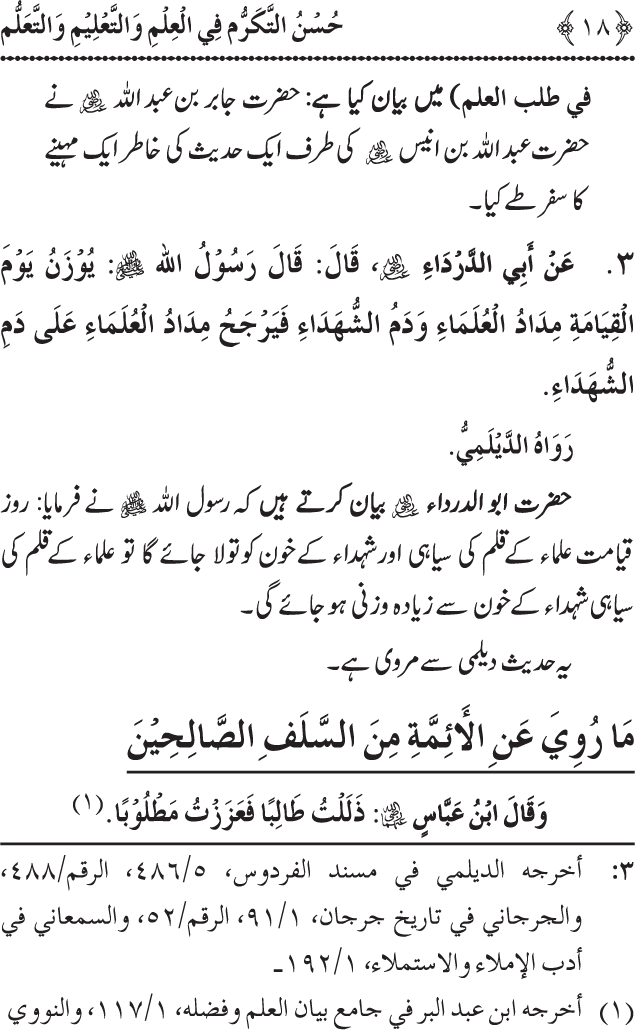 ﴿١٨﴾ حُسْنُ التَّكَرُّمِ فِي الْعِلْمِ وَالتَّعْلِيْمِ وَالتَّعَلُّمِ
في طلب العلم) میں بیان کیا ہے: حضرت جابر بن عبد اللہ رضی اللہ عنہ نے
حضرت عبد اللہ بن انیس رضی اللہ عنہ کی طرف ایک حدیث کی خاطر ایک مہینے
کا سفر طے کیا۔
٣. عَنْ أَبِي الدَّرْدَاءِ رضی اللہ عنہ، قَالَ: قَالَ رَسُوْلُ الله ﷺ: يُوْزَنُ يَوْمَ
الْقِيَامَةِ مِدَادُ الْعُلَمَاءِ وَدَمُ الشُّهَدَاءِ فَيَرْجَحُ مِدَادُ الْعُلَمَاءِ عَلَى دَمِ
الشُّهَدَاءِ.
رَوَاهُ الدَّيْلَمِيُّ.
حضرت ابو الدرداء رضی اللہ عنہ بیان کرتے ہیں کہ رسول اللہ ﷺ نے فرمایا: روز
قیامت علماء کے قلم کی سیاہی اور شہداء کے خون کو تولا جائے گا تو علماء کے قلم کی
سیاہی شہداء کے خون سے زیادہ وزنی ہو جائے گی۔
یہ حدیث دیلمی سے مروی ہے۔
مَا رُوِيَ عَنِ الْأَئِمَّةِ مِنَ السَّلَفِ الصَّالِحِيْنَ
وَقَالَ ابْنُ عَبَّاسٍ رضی اللہ عنہما: ذَلَلْتُ طَالِبًا فَعَزَزْتُ مَطْلُوْبًا.(١)
٣: أخرجه الديلمي في مسند الفردوس، ٥/٤٨٦، الرقم/٤٨٨،
والجرجاني في تاريخ جرجان، ١/٩١، الرقم/٥٢، والسمعاني في
أدب الإملاء والاستملاء، ١/١٩٢۔
(١) أخرجه ابن عبد البر في جامع بيان العلم وفضله، ١/١١٧، والنووي